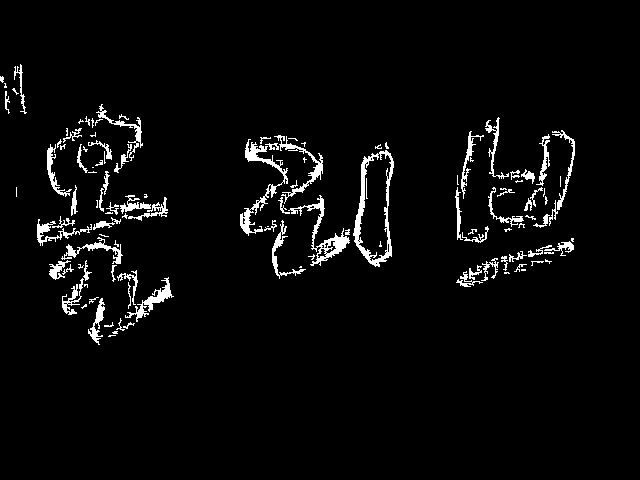 올리브